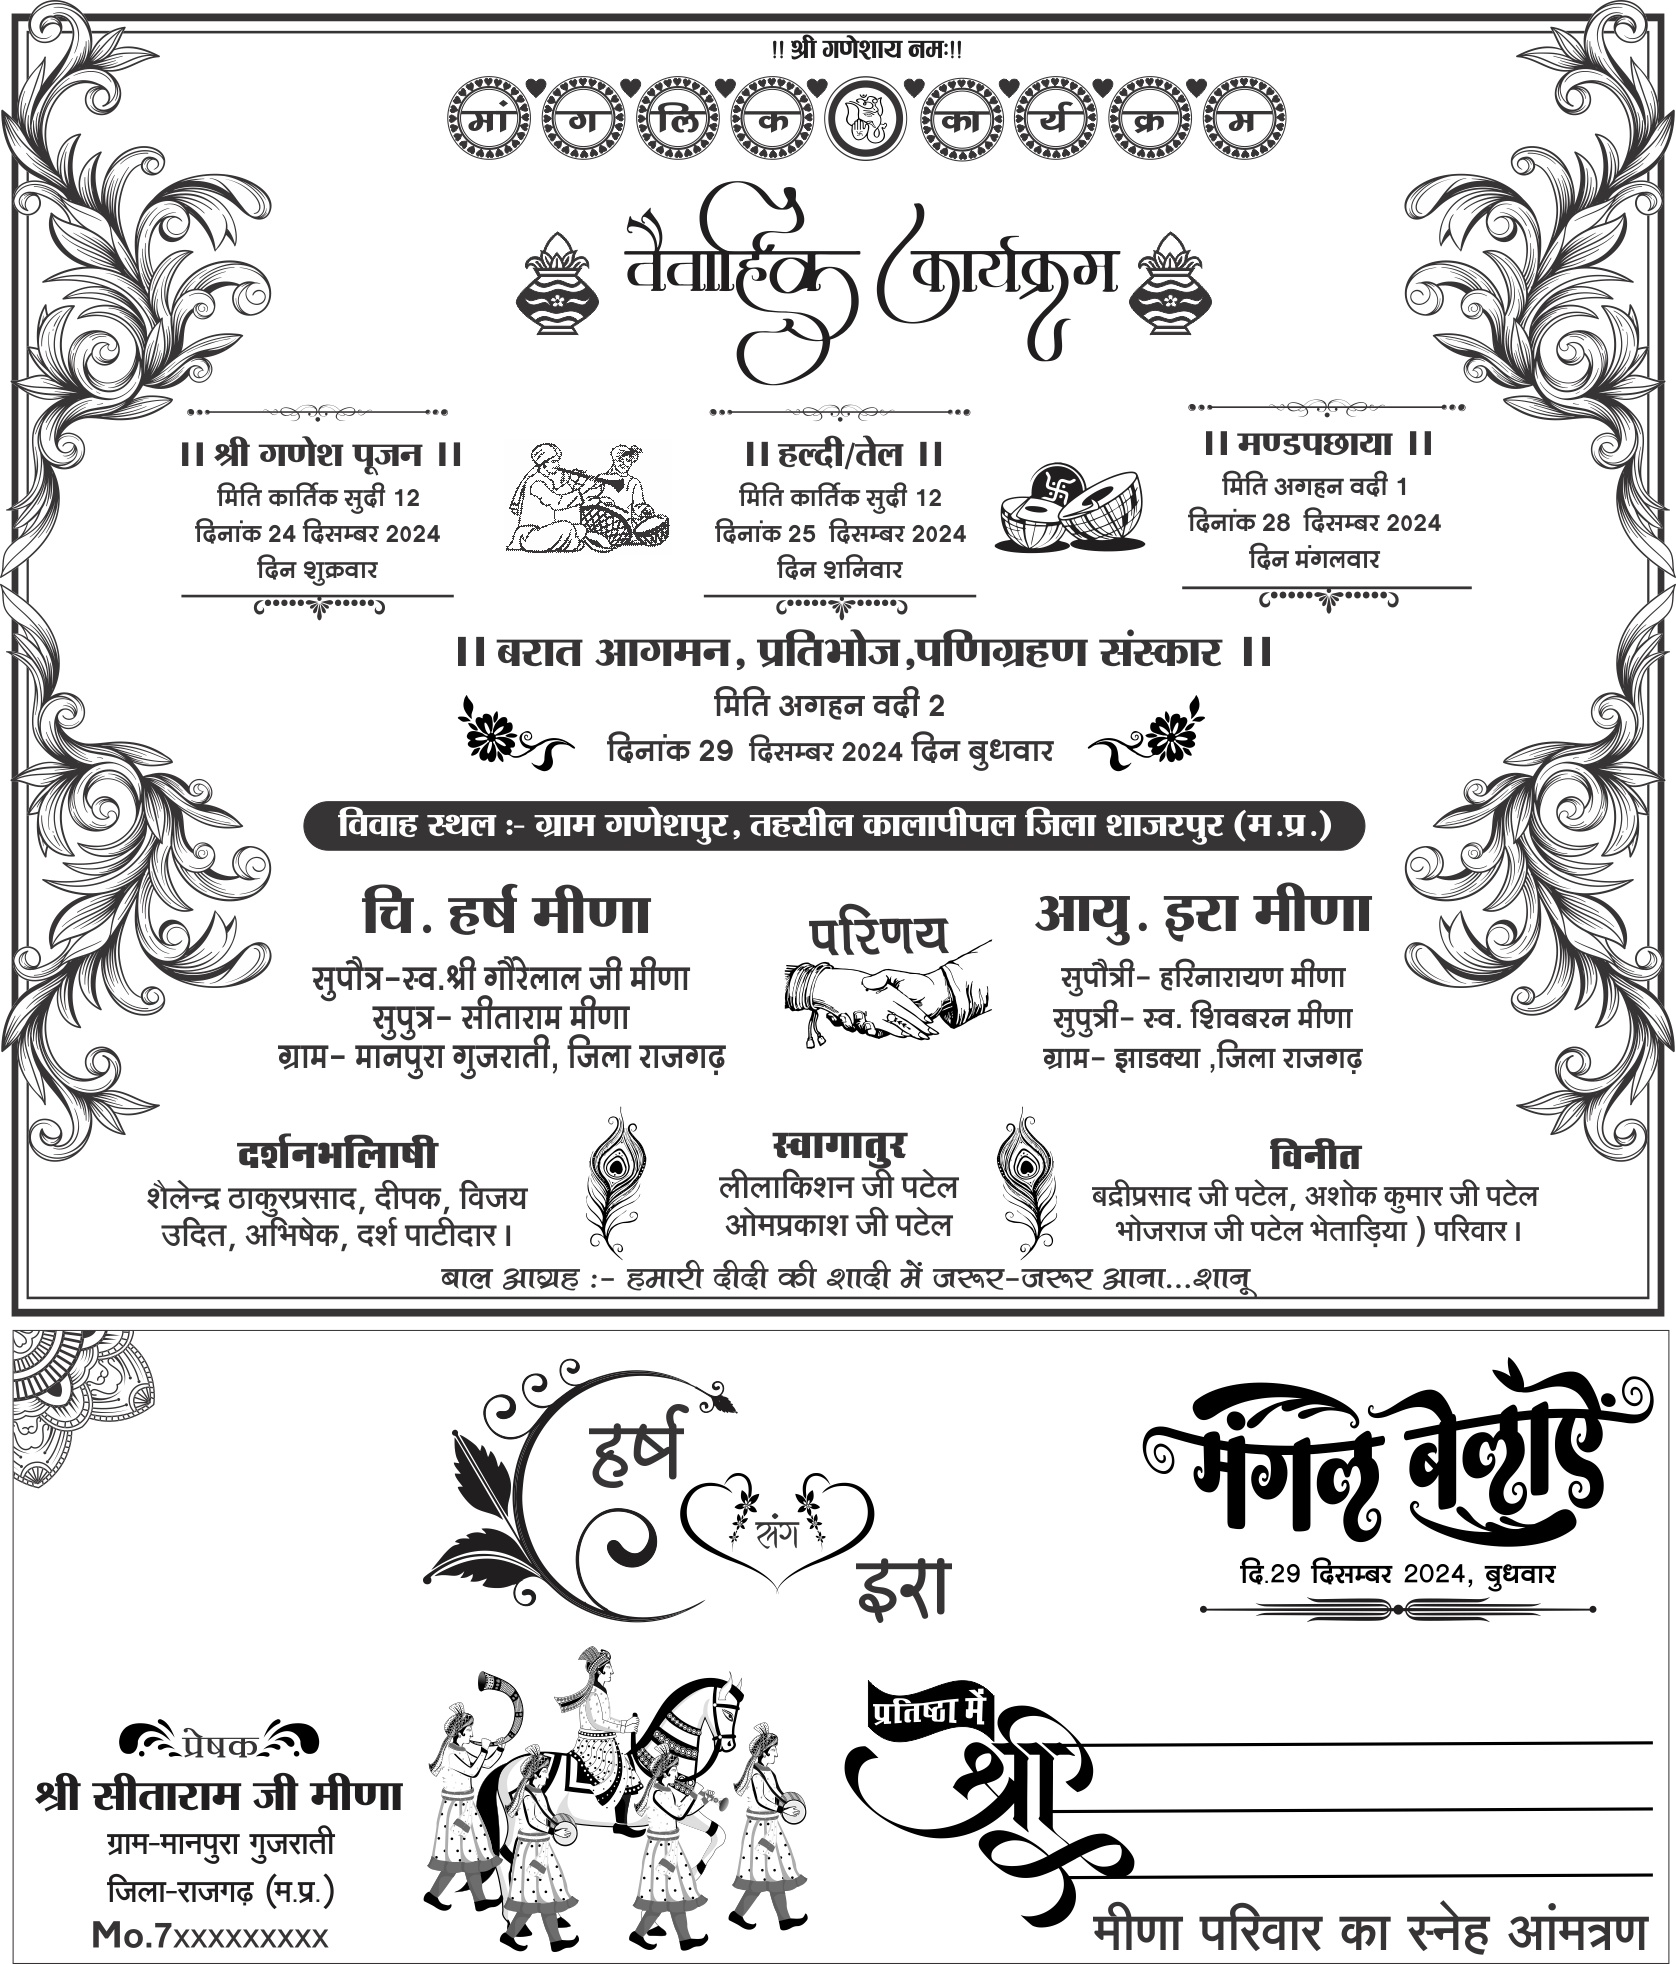 !! श्री गणेशाय नमः!!
मांगलिक कार्यक्रम
वैवाहिक कार्यक्रम
।। श्री गणेश पूजन ।।
मिति कार्तिक सुदी 12
दिनांक 24 दिसम्बर 2024
दिन शुक्रवार
।। हल्दी/तेल ।।
मिति कार्तिक सुदी 12
दिनांक 25 दिसम्बर 2024
दिन शनिवार
।। मण्डपछाया ।।
मिति अगहन वदी 1
दिनांक 28 दिसम्बर 2024
दिन मंगलवार
।। बरात आगमन, प्रतिभोज,पणिग्रहण संस्कार ।।
मिति अगहन वदी 2
दिनांक 29 दिसम्बर 2024 दिन बुधवार
विवाह स्थल :- ग्राम गणेशपुर, तहसील कालापीपल जिला शाजरपुर (म.प्र.)
चि. हर्ष मीणा
सुपौत्र-स्व.श्री गौरेलाल जी मीणा
सुपुत्र- सीताराम मीणा
ग्राम- मानपुरा गुजराती, जिला राजगढ़
परिणय
आयु. इरा मीणा
सुपौत्री- हरिनारायण मीणा
सुपुत्री- स्व. शिवबरन मीणा
ग्राम- झाडक्या ,जिला राजगढ़
दर्शनभलिाषी
शैलेन्द्र ठाकुरप्रसाद, दीपक, विजय
उदित, अभिषेक, दर्श पाटीदार।
स्वागातुर
लीलाकिशन जी पटेल
ओमप्रकाश जी पटेल
विनीत
बद्रीप्रसाद जी पटेल, अशोक कुमार जी पटेल
भोजराज जी पटेल भेताड़िया ) परिवार।
बाल आग्रह :- हमारी दीदी की शादी में जरूर-जरूर आना...शानू
हर्ष
संग
इरा
मंगल बेलाऐं
दि.29 दिसम्बर 2024, बुधवार
प्रेषक
श्री सीताराम जी मीणा
ग्राम-मानपुरा गुजराती
जिला-राजगढ़ (म.प्र.)
Mo.7xxxxxxxxx
प्रतिष्ठा में
श्री
मीणा परिवार का स्नेह आंमत्रण